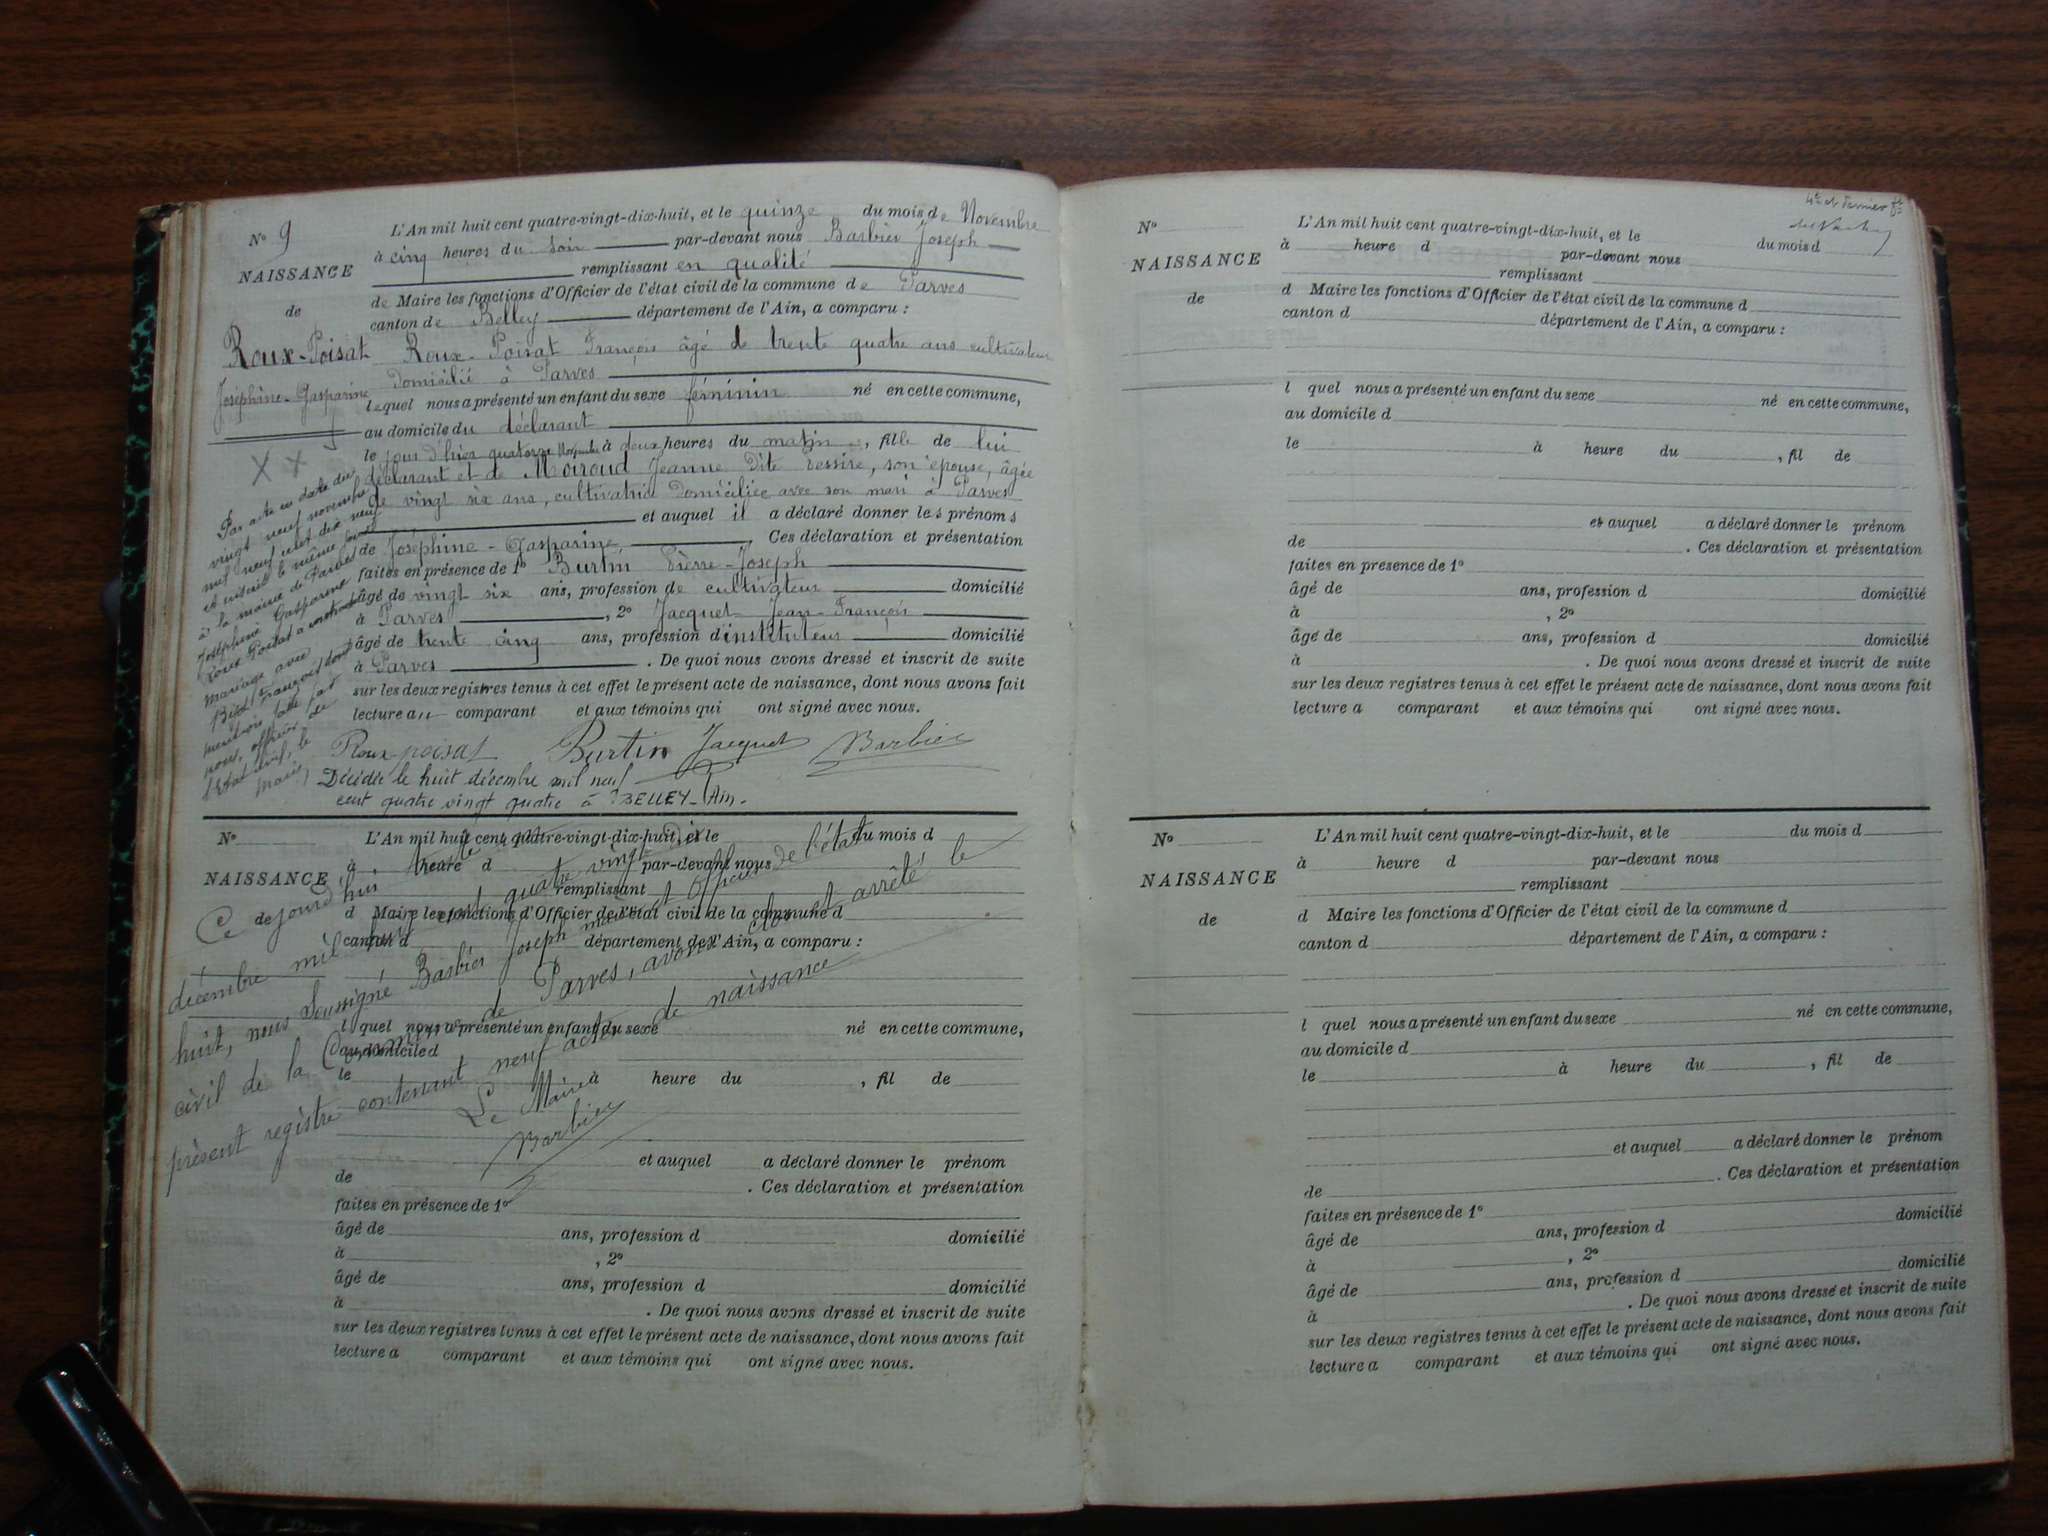 N° 9
NAISSANCE
de
Roux-Poisat
Joséphine-Gasparine
L'An mil huit cent quatre-vingt-dix-huit, et le quinze du mois de Novembre
à cinq heures du soir par-devant nous Barbier Joseph
remplissant en qualité
de Maire les fonctions d'Officier de l'état civil de la commune de Parves
canton de Belley département de l'Ain, a comparu :
Roux-Poisat François âgé de trente quatre ans cultivateur
domicilié à Parves
lequel nous a présenté un enfant du sexe féminin né en cette commune,
au domicile du déclarant
le jour d'hier quatorze Novembre à deux heures du matin, fille de lui
déclarant et de Moiroud Jeanne dite, son épouse, âgée
de vingt six ans, cultivatrice domiciliée avec son mari à Parves
et auquel il a déclaré donner les prénoms
de Joséphine-Gasparine, Ces déclaration et présentation
faites en présence de 1° Burtin Pierre-Joseph
âgé de vingt six ans, profession de cultivateur domicilié
à Parves, 2° Jacquet Jean-François
âgé de trente cinq ans, profession d'instituteur domicilié
à Parves. De quoi nous avons dressé et inscrit de suite
sur les deux registres tenus à cet effet le présent acte de naissance, dont nous avons fait
lecture au comparant et aux témoins qui ont signé avec nous.
Roux-poisat Burtin Jacquet Barbier
Décédée le huit décembre mil neuf
cent quatre vingt quatre à BELLEY-Ain.
X X
Par acte en date du
vingt neuf novembre
mil neuf cent dix neuf
et inscrit le même jour
à la mairie de Parves
Joséphine Gasparine
Roux Poisat a contracté
mariage avec
François dont
mention faite par
nous, officier de
l'état civil, le
maire,
N°
NAISSANCE
de
L'An mil huit cent quatre-vingt-dix-huit, et le du mois d
à heure d par-devant nous
remplissant
d Maire les fonctions d'Officier de l'état civil de la commune d
canton d département de l'Ain, a comparu :
l quel nous a présenté un enfant du sexe né en cette commune,
au domicile d
le à heure du , fil de
et auquel a déclaré donner le prénom
de . Ces déclaration et présentation
faites en présence de 1°
âgé de ans, profession d domicilié
à , 2°
âgé de ans, profession d domicilié
à . De quoi nous avons dressé et inscrit de suite
sur les deux registres tenus à cet effet le présent acte de naissance, dont nous avons fait
lecture a comparant et aux témoins qui ont signé avec nous.
Ce jourd'hui trente et un
décembre mil huit cent quatre vingt dix
huit, nous soussigné Barbier Joseph maire et officier de l'état
civil de la Commune de Parves, avons clos et arrêté le
présent registre contenant neuf actes de naissance
Le Maire
Barbier
4e et dernier
N°
NAISSANCE
de
L'An mil huit cent quatre-vingt-dix-huit, et le du mois d
à heure d par-devant nous
remplissant
d Maire les fonctions d'Officier de l'état civil de la commune d
canton d département de l'Ain, a comparu :
l quel nous a présenté un enfant du sexe né en cette commune,
au domicile d
le à heure du , fil de
et auquel a déclaré donner le prénom
de . Ces déclaration et présentation
faites en presence de 1°
âgé de ans, profession d domicilié
à , 2°
âgé de ans, profession d domicilié
à . De quoi nous avons dressé et inscrit de suite
sur les deux registres tenus à cet effet le présent acte de naissance, dont nous avons fait
lecture a comparant et aux témoins qui ont signé avec nous.
N°
NAISSANCE
de
L'An mil huit cent quatre-vingt-dix-huit, et le du mois d
à heure d par-devant nous
remplissant
d Maire les fonctions d'Officier de l'état civil de la commune d
canton d département de l'Ain, a comparu :
l quel nous a présenté un enfant du sexe né en cette commune,
au domicile d
le à heure du , fil de
et auquel a déclaré donner le prénom
de . Ces déclaration et présentation
faites en présence de 1°
âgé de ans, profession d domicilié
à , 2°
âgé de ans, profession d domicilié
à . De quoi nous avons dressé et inscrit de suite
sur les deux registres tenus à cet effet le présent acte de naissance, dont nous avons fait
lecture a comparant et aux témoins qui ont signé avec nous.